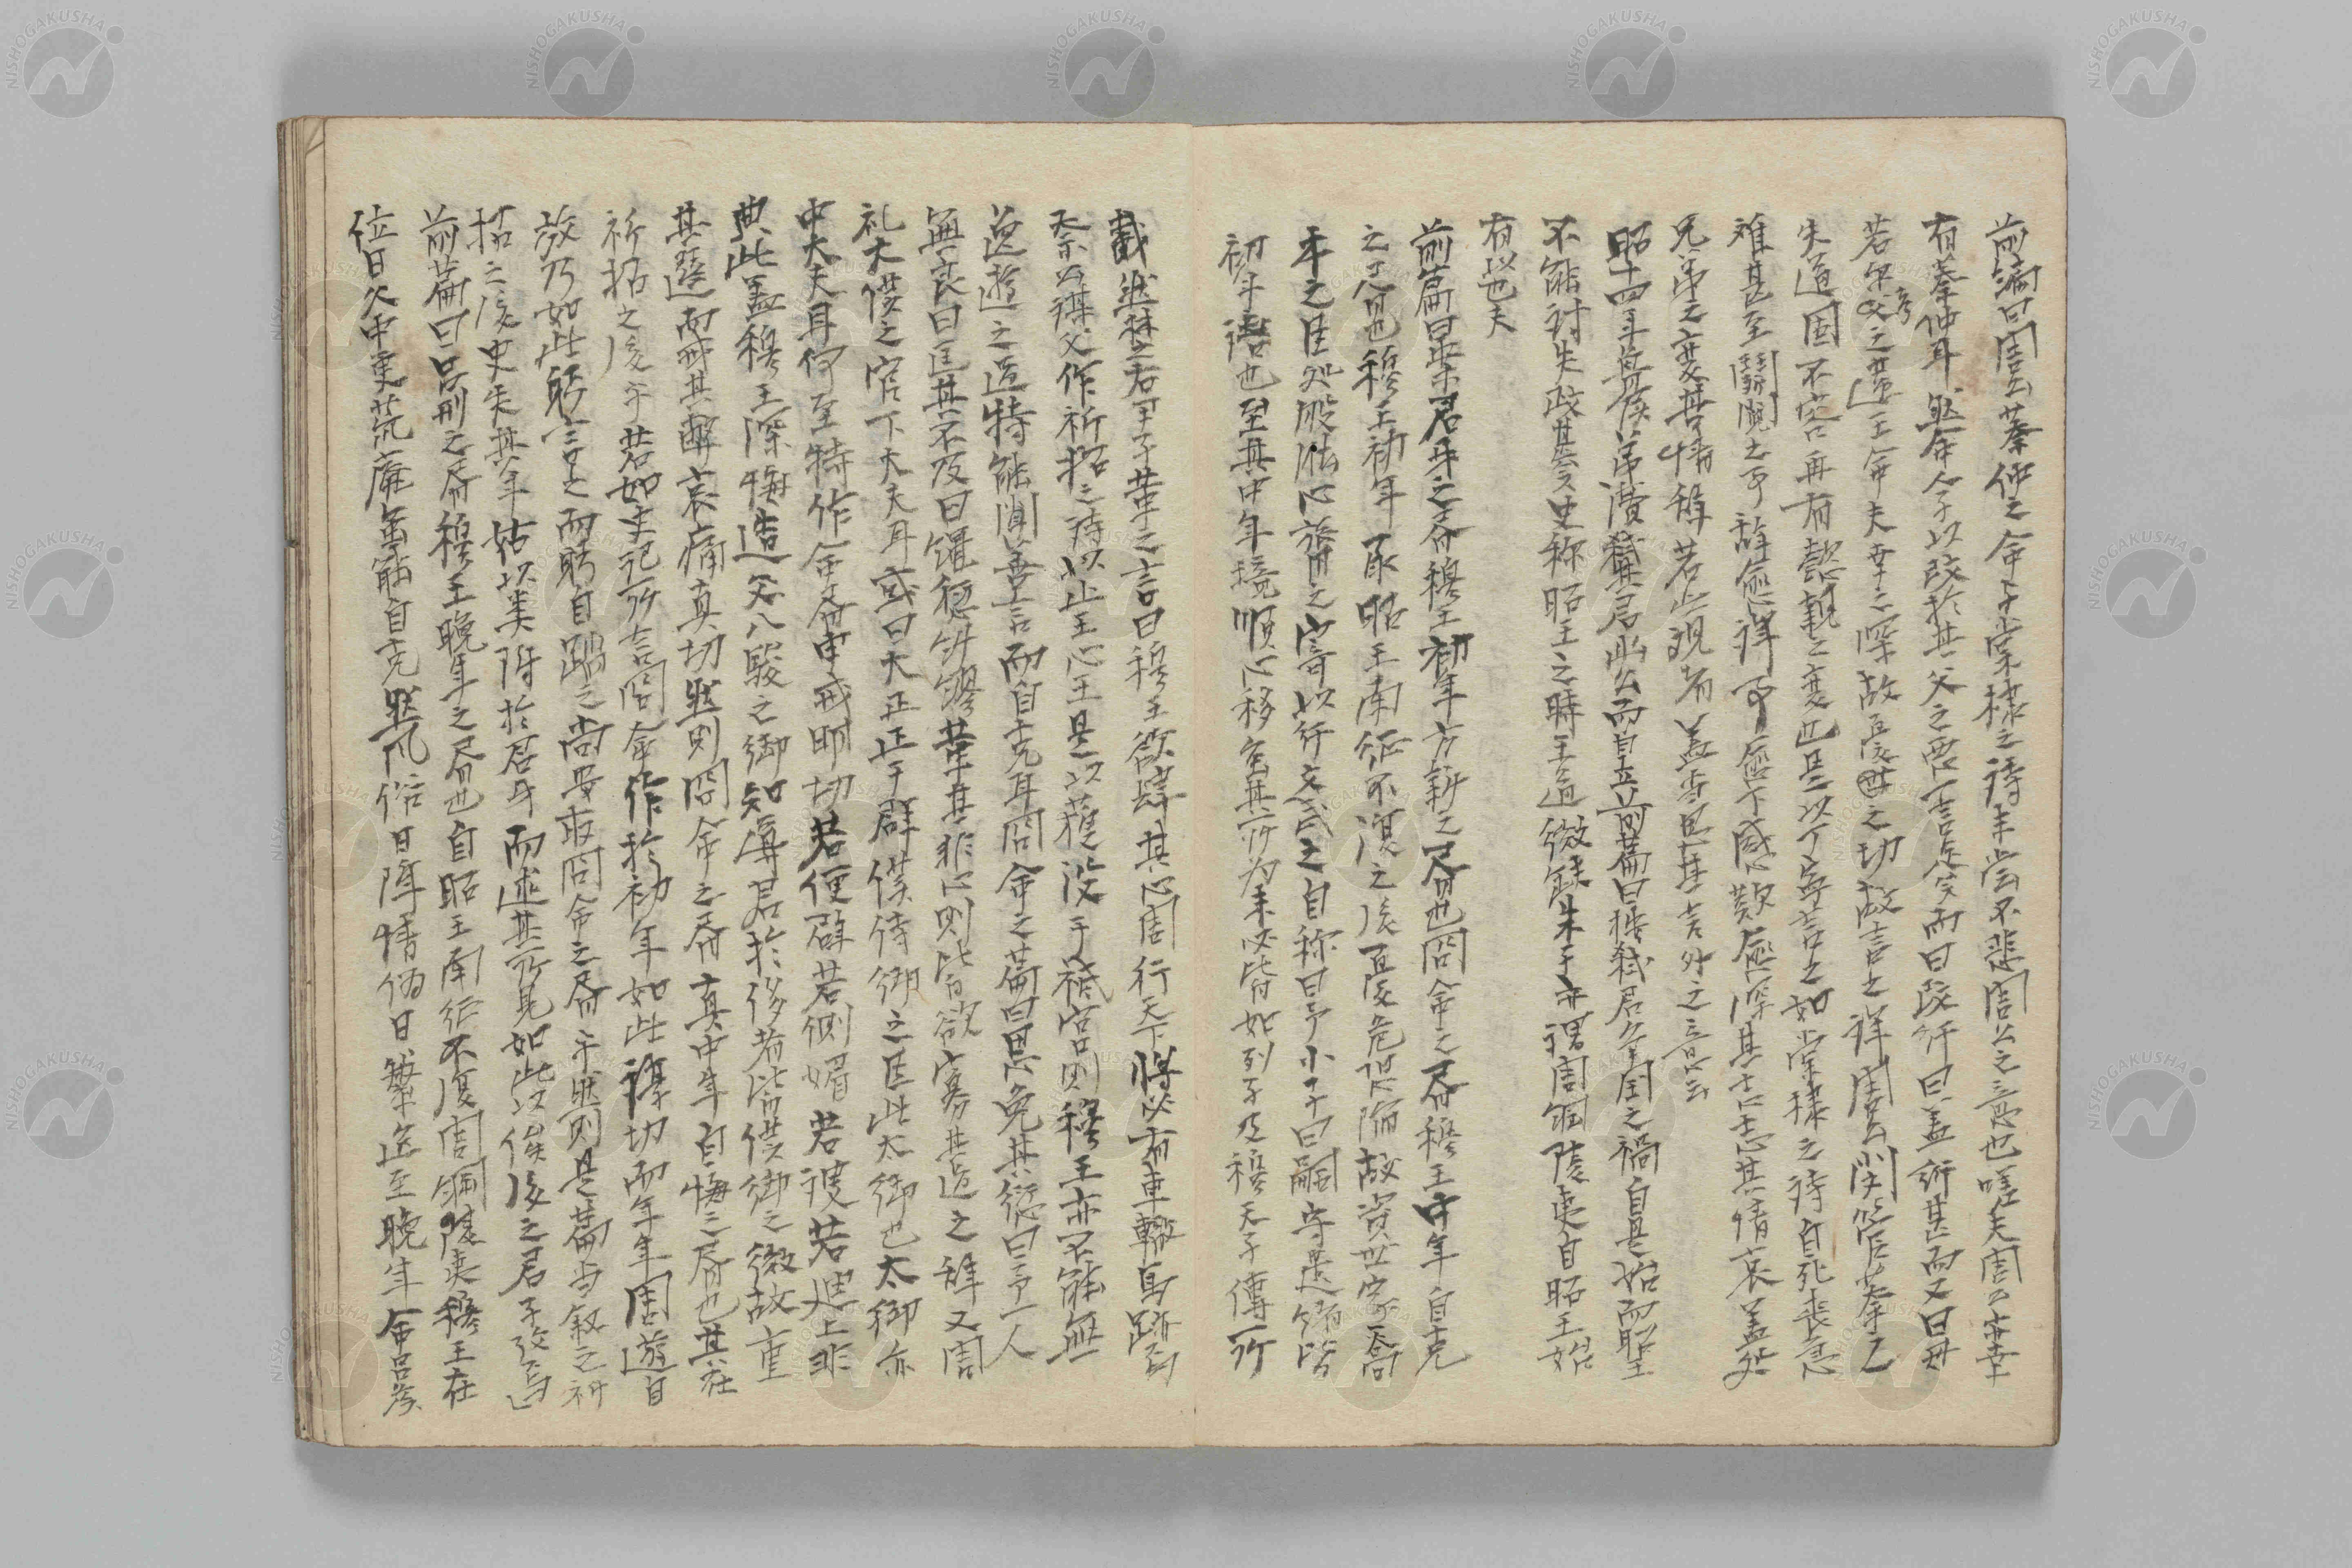 前編曰周公蔡仲之命卞常棣之詩未嘗不悲周公之意也嗟夫周公幸
有蔡仲耳然命人子以改於其父之惡言是實而曰改行曰蓋愆甚而又曰毋
若尔考之違王命夫幸之深故憂世之切故言之詳周公閔管蔡之
失道固不容再有懿親之變也是以丁寧言之如常棣之詩自死喪急
难甚至鬪鬩之事辭愈詳事愈下感歎愈深其志其情哀蓋処
兄弟之變其情辞若此觀者盖当思其言外之意云
昭十四年魯侯弟濞弑其君幽公而自立前篇曰諸弑君争国之禍自是始而昭王
不能討失政甚矣史称昭王之時王道微缺朱子亦謂周綱陵夷自昭王始
有以也夫
前篇曰是君牙之命穆王初年方新之命也冏命之命穆王中年自克
之命也穆王初年承昭王南征不復之後憂危偎陥故資世家喬
木之臣処股肱心膂之寄以行文武之自称曰予小子曰嗣守遺緒皆
初年語也至其中年境順心移宅其所为未必皆如列子及穆天子傳所
載然楚右尹子革之言曰穆王欲肆其心周行天下將必有車轍馬跡焉
祭公謀父作祈招之詩以止王心王是以獲没于祗宮則穆王亦不能無
逸遊之過特能聞善言而自克耳冏命之篇曰思免其愆曰予一人
無良曰匡其不及曰繩愆糾繆革其非心則皆欲寡其過之辞又周
礼太僕之官下大夫耳或曰大正正于群僕侍御之臣此太御也太御亦
中大夫耳何至特作命命申戒明切若便辟若側媚若諛若迪上非
典此盖穆王深悔造父八駿之御知導君於侈者皆僕御之微故重
其選而戒其辭哀痛真切然则冏命之命真中年自悔之命也其在
祈招之後乎若如史記所言冏命作於初年如此謹切而年年周遊自
放乃如此躬言之而躬自蹈之尚畏取冏命之命乎然则是篇当叙之祈
招之後史失其年姑以类附於君牙而述其所見如此以俟後之君子攷焉
前篇曰吕刑之命穆王晚年之命也自昭王南征不復周綱陵夷穆王在
位日久中更荒廃虽能自克然风俗日降情偽日繁迄至晚年命吕侯